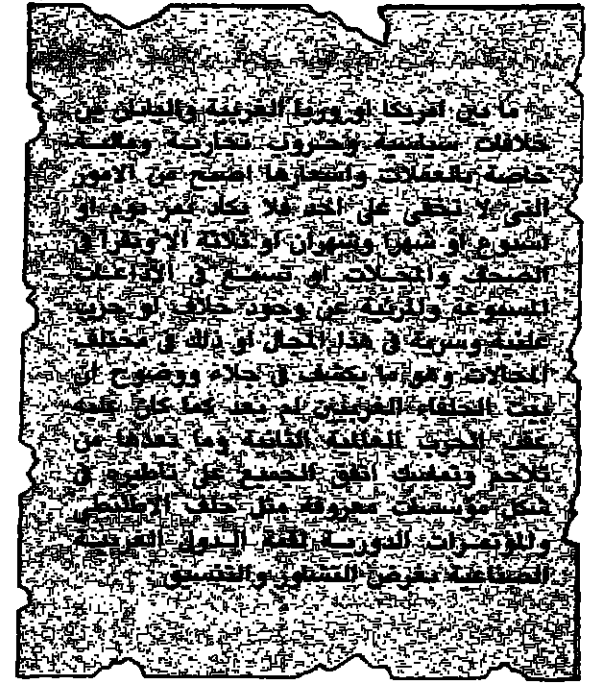 ما بين أمريكا أو وربا الغربية واليابان من
خلافات سياسية وحروب تجارية ومالية
خاصة بالعملات وأسعارها أصبح من الأمور
التي لا تخفى على أحد فلا يكاد يمر يوم أو
أسبوع أو شهرا وشهران أو ثلاثة ألا وتقرأ في
الصحف والمجلات أو تسمع في الأذاعات
المسموعة والمرئية عن وجود خلاف أو حرب
علنية وسرية في هذا المجال أو ذلك في مختلف
المجالات وهو ما يكشف في جلاء ووضوح أن
بيت الحلفاء الغربيين لم يعد كما كان عليه
عقب الحرب العالمية الثانية وما بعدها من
تلاحم وتماسك اتفق الجميع على تأطيره في
شكل مؤسسات معروفة مثل حلف الأطلنطي
والمؤتمرات الدورية لقمة الدول الغربية
الصناعية بغرض التشاور والتنسيق